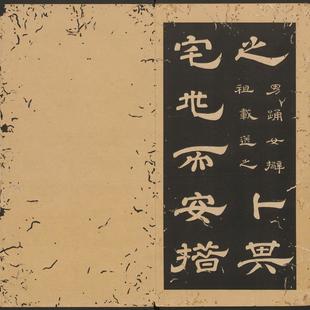 之
男踊女擗
祖載送之
卜其
宅兆而安措